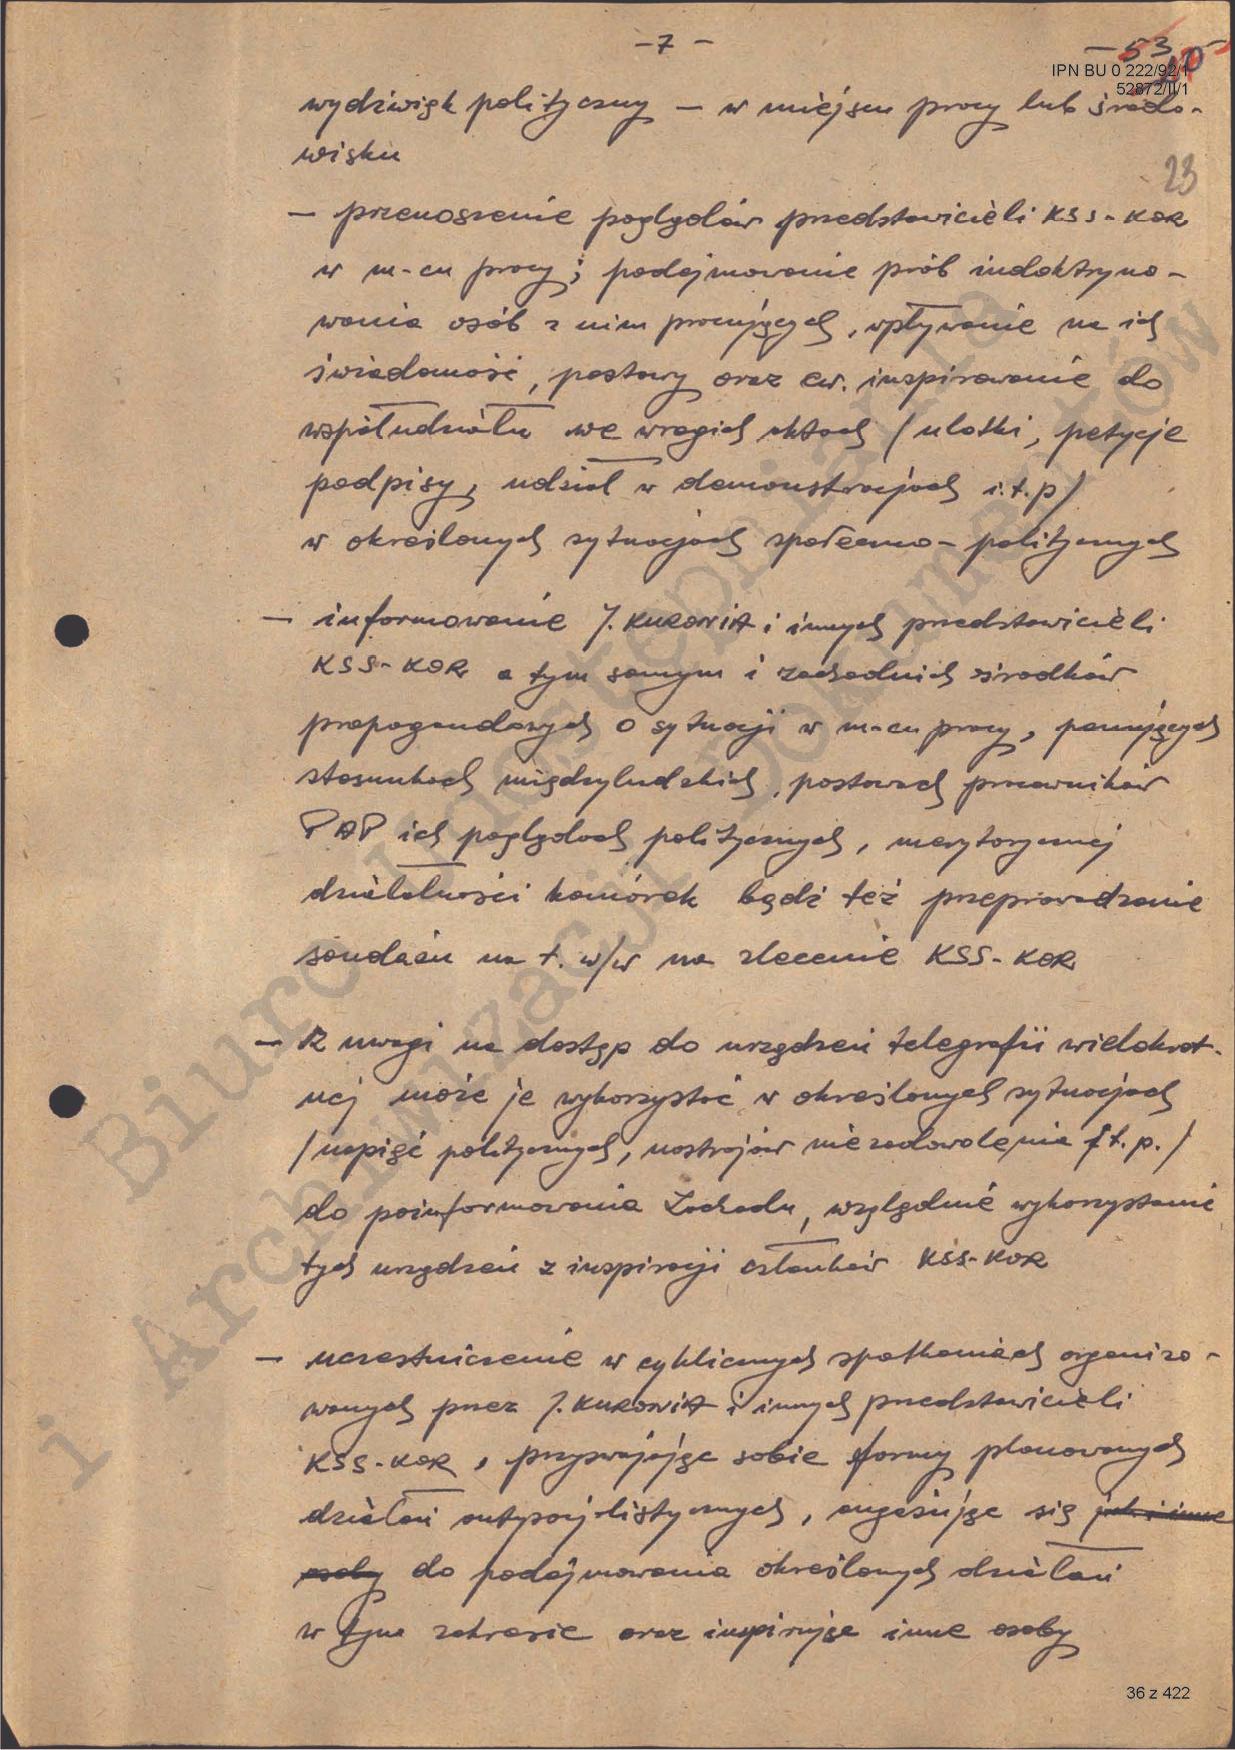 -7-
-53-
IPN BU 0 222/92/1
52872/II/1
wydźwięk polityczny — w miejscu pracy lub środo-
wisku
23
— przenoszenie poglądów przedstawicieli KSS-KOR
w m-cu pracy; podejmowanie prób indoktryno-
wania osób z nim pracujących, wpływanie na ich
świadomość, postawy oraz ew. inspirowanie do
współudziału we wrogich aktach /ulotki, petycje
podpisy, udział w demonstracjach i.t.p/
w określonych sytuacjach społeczno-politycznych
— informowanie J. KURONIA i innych przedstawicieli
KSS-KOR a tym samym i zachodnich ośrodków
propagandowych o sytuacji w m-cu pracy, panujących
stosunkach międzyludzkich, postawach pracowników
PAP ich poglądach politycznych, merytorycznej
działalności komórek bądź też przeprowadzanie
sondażu na t. w/w na zlecenie KSS-KOR
— Z uwagi na dostęp do urządzeń telegrafii wielokrot-
nej może je wykorzystać w określonych sytuacjach
/napięć politycznych, nastrojów niezadowolenia i t.p./
do poinformowania Zachodu, względnie wykorzystanie
tych urządzeń z inspiracji członków KSS-KOR
— uczestniczenie w cyklicznych spotkaniach organizo-
wanych przez J. KURONIA i innych przedstawicieli
KSS-KOR, przyswajając sobie formy planowanych
działań antysocjalistycznych, angażując się jak i inne
osoby do podejmowania określonych działań
w tym zakresie oraz inspirując inne osoby
Biuro Udostępniania
i Archiwizacji Dokumentów
36 z 422